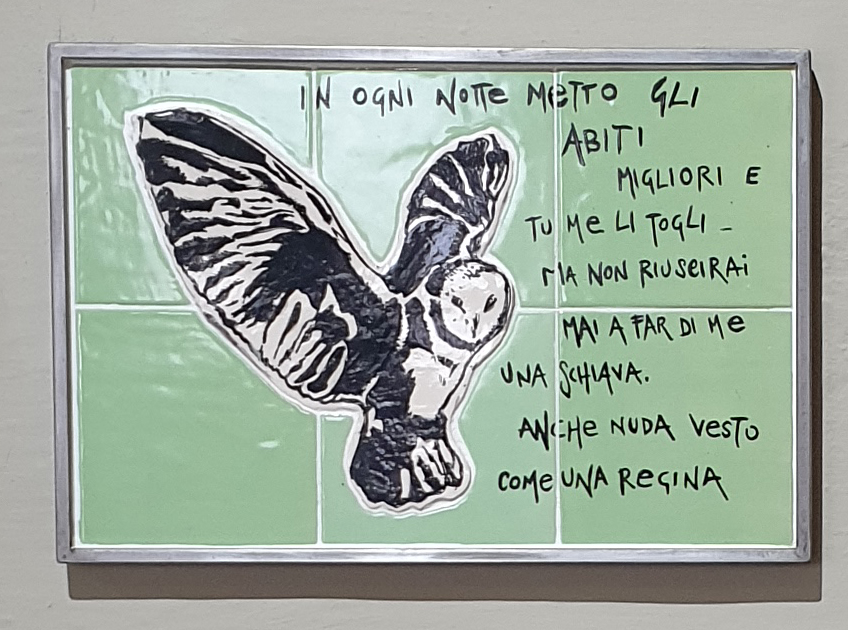 IN OGNI NOTTE METTO GLI
ABITI
MIGLIORI E
TU ME LI TOGLI -
MA NON RIUSCIRAI
MAI A FAR DI ME
UNA SCHIAVA.
ANCHE NUDA VESTO
COME UNA REGINA